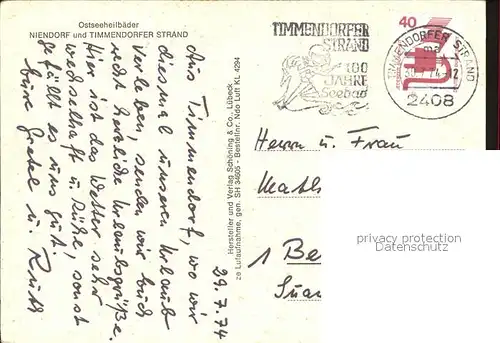 Ostseeheilbäder
NIENDORF und TIMMENDORFER STRAND
Aus Timmendorf, wo wir
diesmal unseren Urlaub
verleben, senden wir Euch
recht herzliche Urlaubsgrüße.
Hier ist das Wetter sehr
wechselhaft u. kühl, sonst
gefällt es uns gut.
Eure Gretel u. Rudi
29.7.74
Hersteller und Verlag Schöning & Co., Lübeck
ze Luftaufnahme, gen. SH 34605 - Bestellnr. Ndo Luft KL 4294
TIMMENDORFER
STRAND
100
JAHRE
Seebad
TIMMENDORFER STRAND
30.7.74-12
2408
40
Herrn u. Frau
1 Be
privacy protection
Datenschutz